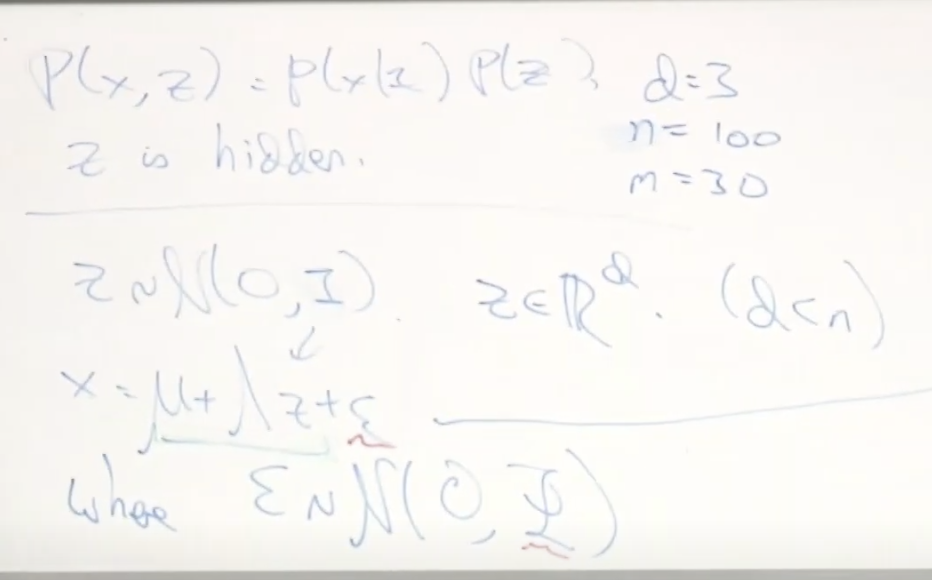 P(x,z) = p(x|z) P(z), d=3
z is hidden. n= 100
m = 30
z ~ N(0,I). z ∈ ℝ^d. (d<n)
x = μ + Λz + ε
where ε ~ N(0, Ψ)